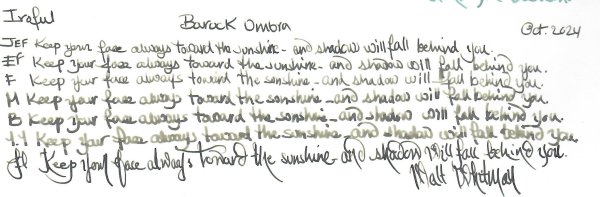 Iraful Barock Ombra Oct. 2024
JEF Keep your face always toward the sunshine - and shadow will fall behind you.
EF Keep your face always toward the sunshine - and shadow will fall behind you.
F Keep your face always toward the sunshine - and shadow will fall behind you.
M Keep your face always toward the sunshine - and shadow will fall behind you.
B Keep your face always toward the sunshine - and shadow will fall behind you.
1.1 Keep your face always toward the sunshine - and shadow will fall behind you.
Keep your face always toward the sunshine - and shadow will fall behind you.
Walt Whitman